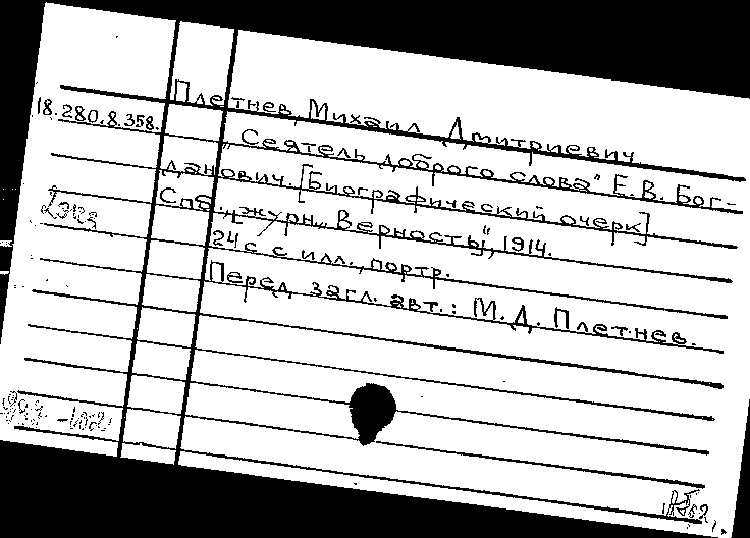 Плетнев, Михаил Дмитриевич
18.280.8.358.
„Сеятель доброго слова" Е.В. Бог-
данович. [Биографический очерк].
Спб., журн. „Верность", 1914.
24 с с илл., портр.
Перед загл. авт.: М.Д. Плетнев.